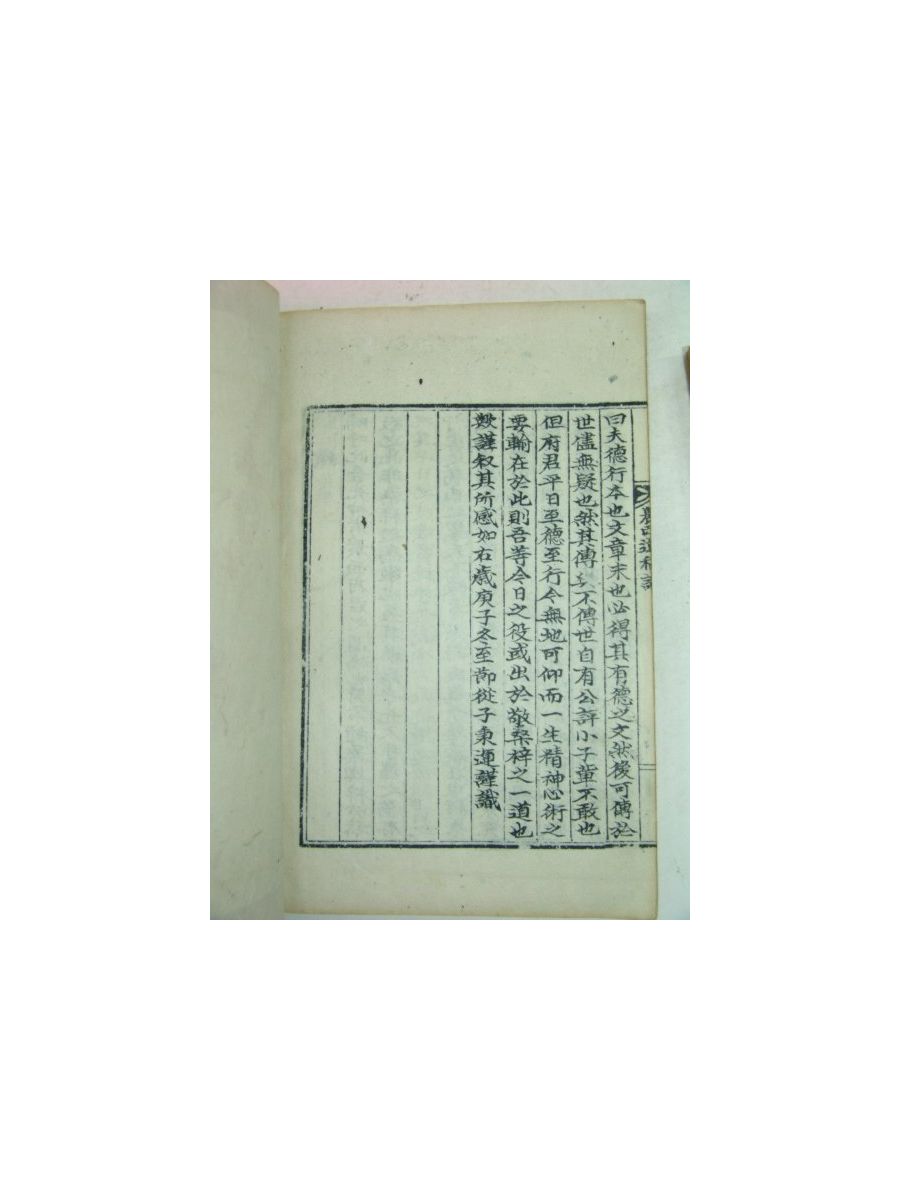 曰夫德行本也文章末也必得其有德之文然後可傳於
世儘無疑也然其傳與不傳世自有公評小子輩不敢也
但府君平日至德至行今無地可仰而一生精神心術之
要輸在於此則吾等今日之役或出於敬桑梓之一道也
歟謹叙其所感如右歲庚子冬至節從子秉運謹識
遺稿